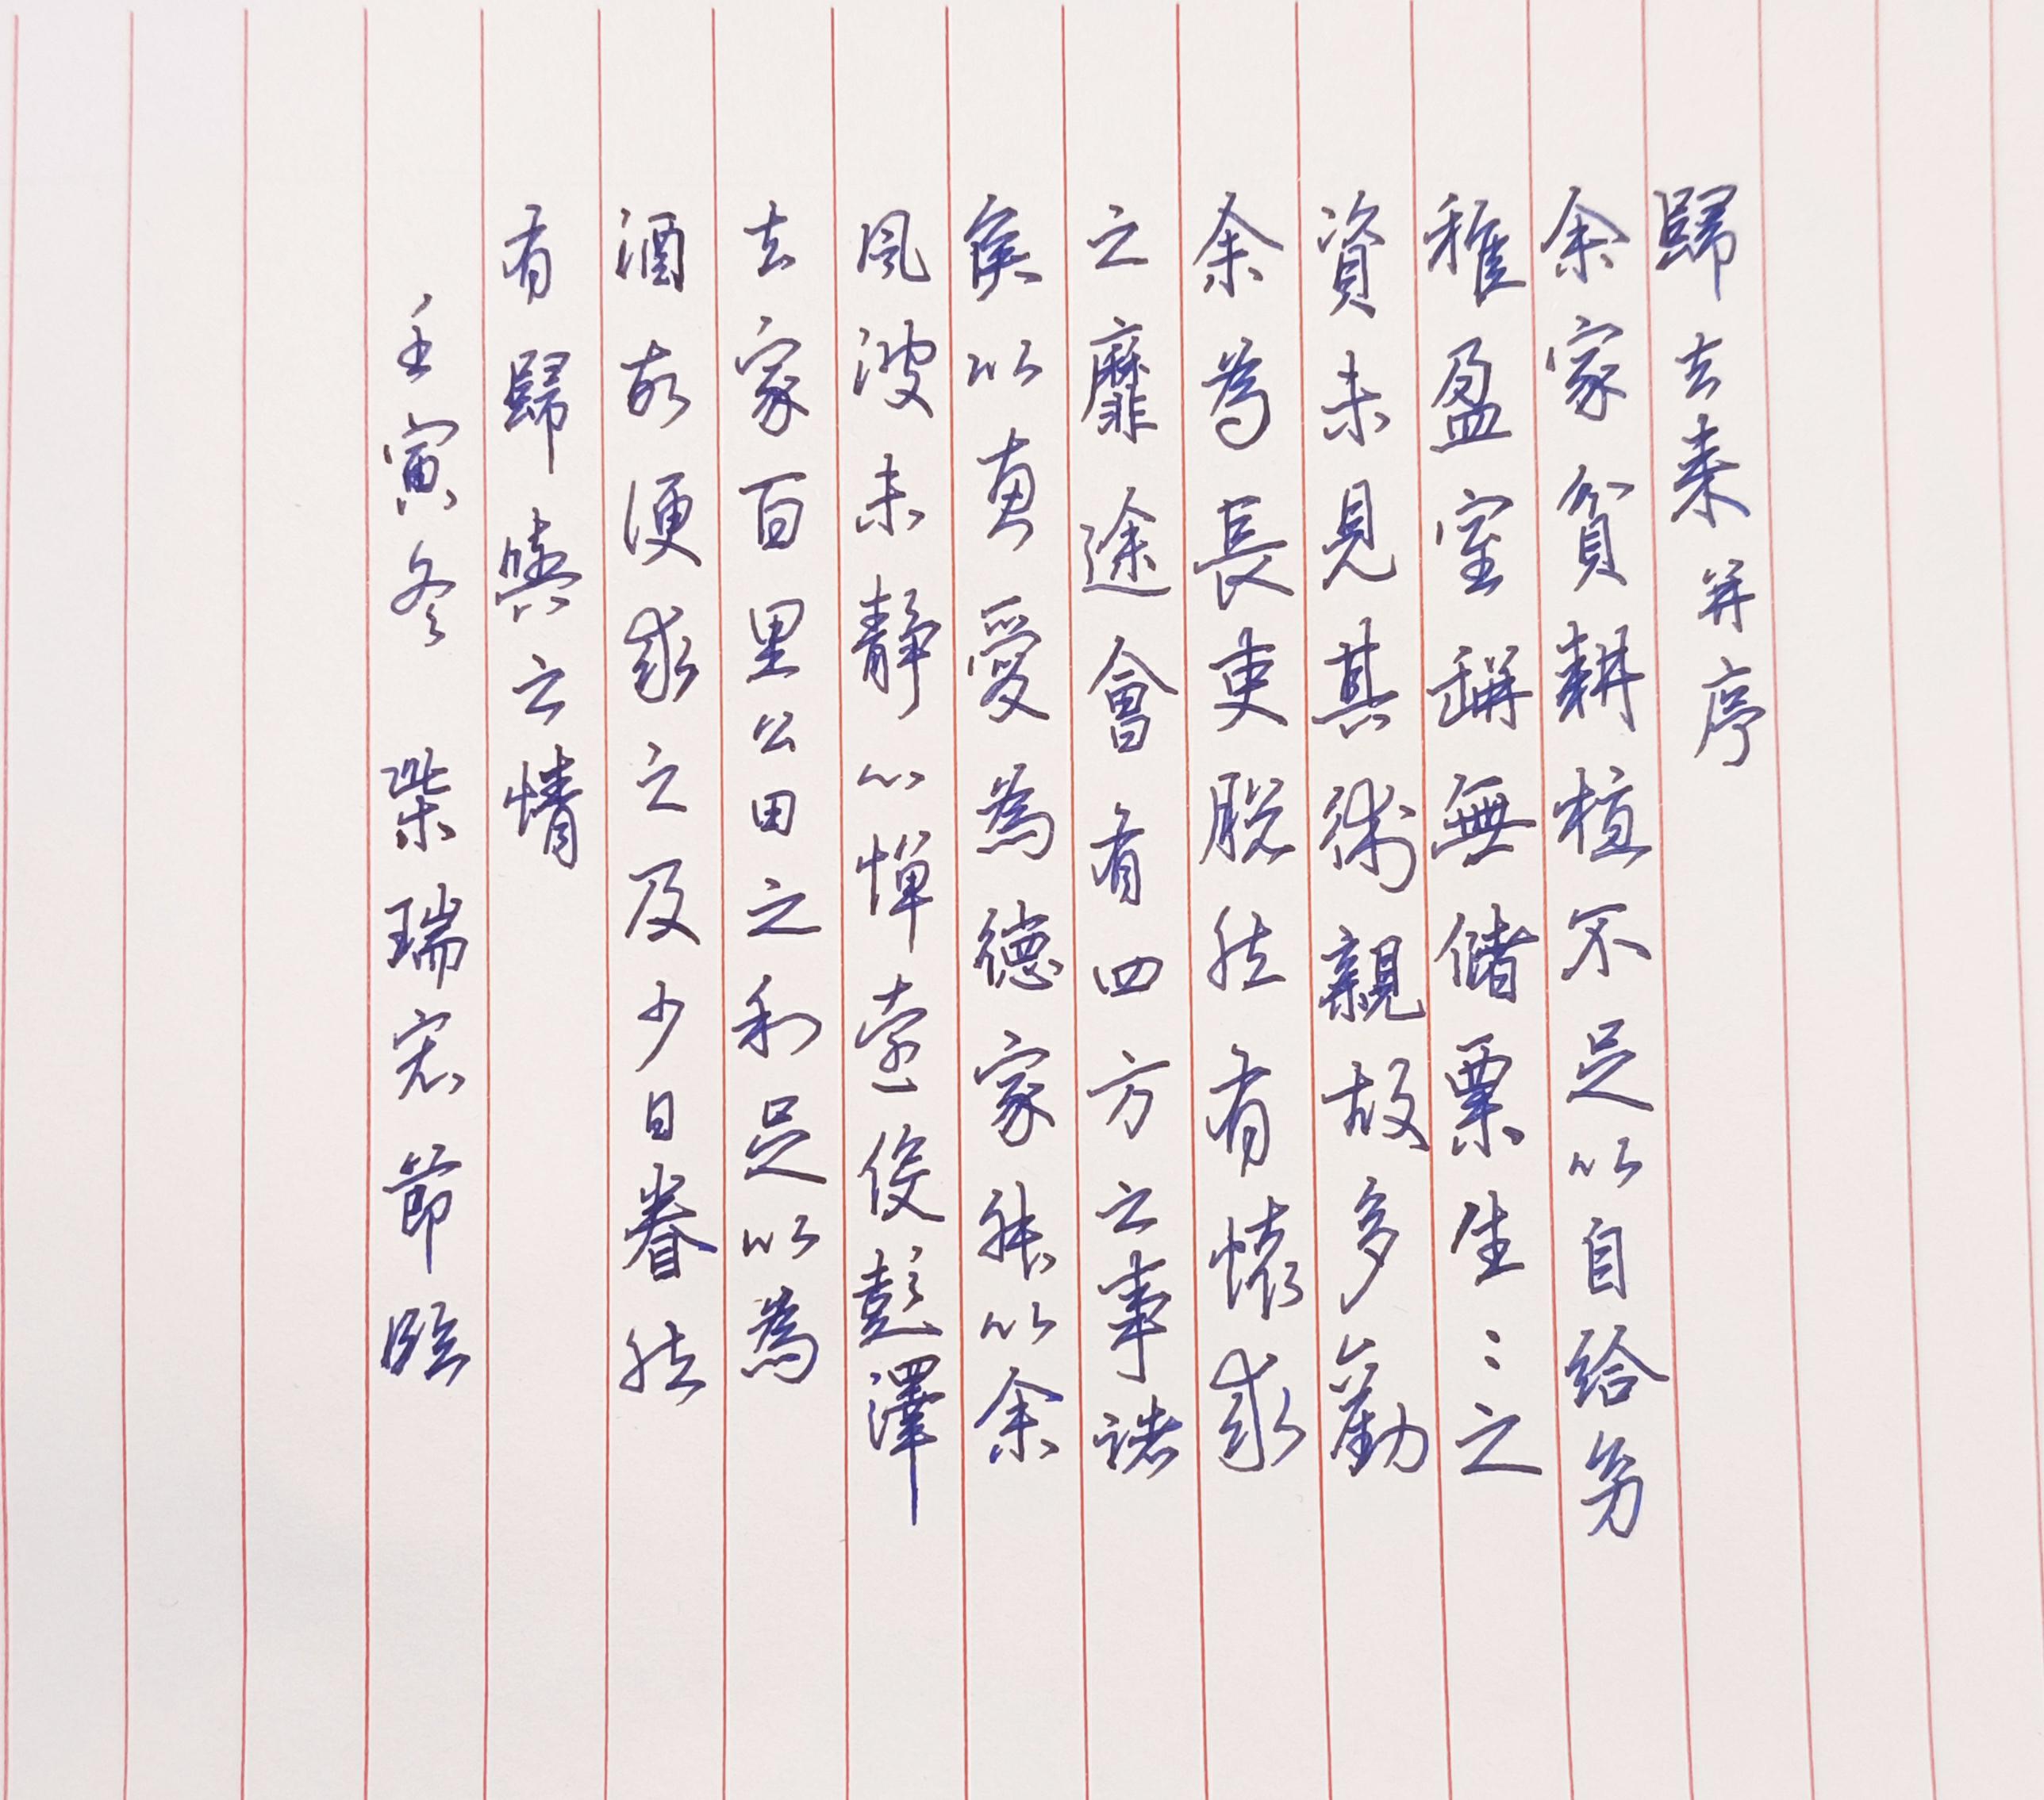 歸去来并序
余家貧耕植不足以自給㓜
稚盈室缾無儲粟生〻之
資未見其術親故多勸
余為長吏脱然有懷求
之靡途會有四方之事諸
侯以惠愛為德家叔以余
風波未静心憚遠役彭澤
去家百里公田之利足以為
酒故便求之及少日眷然
有歸歟之情
壬寅冬 柴瑞宏節臨